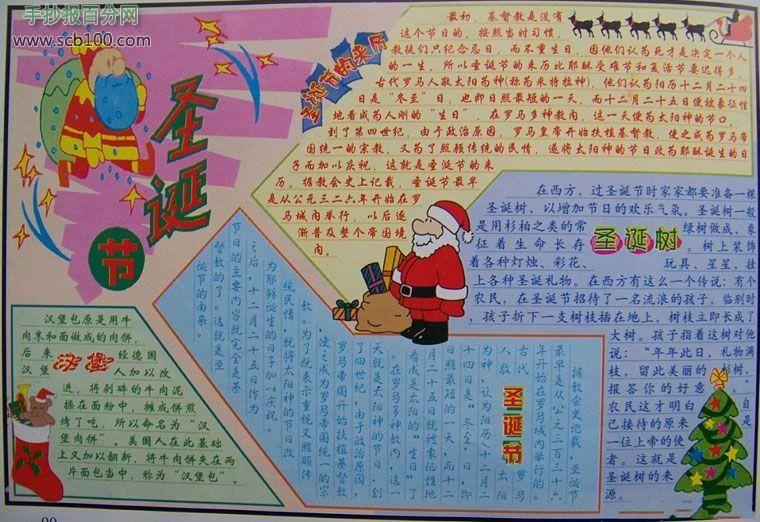 手抄报百分网
www.scb100.com
圣诞节
圣诞节的来历
最初，基督教是没有
这个节日的，按照当时习惯，
教徒们只纪念忌日，而不重生日，因他们认为死才是决定一个人
的一生，所以圣诞节的来历比耶稣受难节和复活节要迟得多。
古代罗马人敬太阳为神(称为米特拉神)，他们认为阳历十二月二十四
日是“冬至”日，也即日照最短的一天，而十二月二十五日便被象征性
地看成为人刚的“生日”，在罗马多种教内，这一天便为太阳神的节口，
到了第四世纪，由于政治原因，罗马皇帝开始扶植基督教，使之成为罗马帝
国统一的宗教，又为了照顾传统的民情，遂将太阳神的节日改为耶稣诞生的日
子而加以庆祝，这就是圣诞节的来
历。据教会史上记载，圣诞节最早
是从公元三二六年开始在罗
马城内举行，以后逐
渐普及整个帝国境
内。
圣诞树
在西方，过圣诞节时家家都要准备一棵
圣诞树，以增加节日的欢乐气氛。圣诞树一般
是用杉柏之类的常绿树做成，象
征着生命长存。树上装饰
着各种灯烛、彩花、玩具、星星，挂
上各种圣诞礼物。在西方有这么一个传说：有个
农民，在圣诞节招待了一名流浪的孩子，临别时
孩子折下一支树枝插在地上，树枝立即长成了
大树。孩子指着这树对他
说：“年年此日，礼物满
枝，留此美丽的树，
报答你的好意”
农民这才明白自
己接待的原来是
一位上帝的使
者。这就是
圣诞树的来
源。
汉堡
汉堡包原是用牛
肉末和面做成的肉饼，
后来经德国
汉堡人加以改
进，将剁碎的牛肉泥
揉在面粉中，摊成饼煎
烤了吃，所以命名为“汉
堡肉饼”。美国人在此基础
上又加以翻新，将牛肉饼夹在两
片面包当中，称为“汉堡包”。
圣诞节
据教会史记载，圣诞节
最早是从公元三百三十六
年开始在罗马城内举行的。
古代罗马
人敬太阳
为神，认为阳历十二月二
十四日是“冬至”日，即
日照最短的一天，而十二
月二十五日就被象征性地
看成是太阳的“生日”了
。在罗马多种教内，这一
天就是太阳神的节日。到
了四世纪，由于政治原因，
罗马帝国开始扶植基督教
使之成为罗马帝国统一的宗
教。为了既表示重视又照顾传
统民情，就将太阳神的节日改
为耶稣诞生的日子加以庆祝。
之后，十二月二十五日作为
节日的主要内容就完全是基
督教的了。这就是圣
诞节的由来。